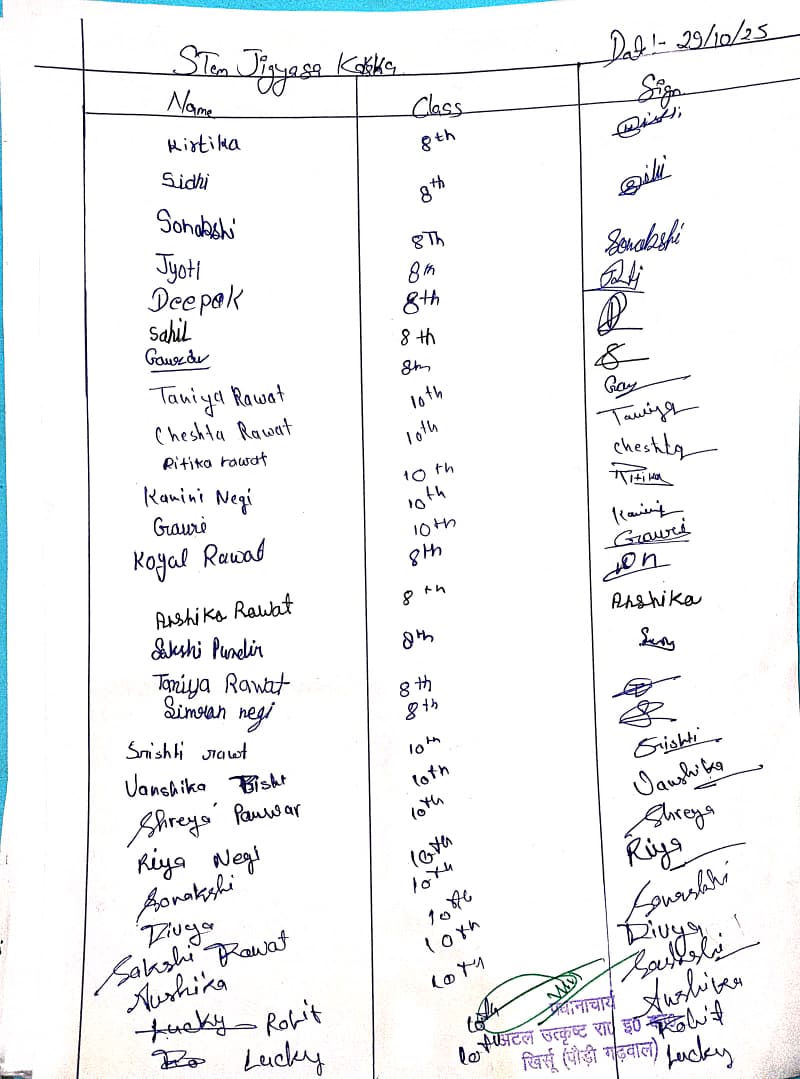 Dat!- 29/10/25
STem Jigyasa Kaksha
Name Class Sign
Kirtika 8th
Sidhi 8th
Sonakshi 8Th Sonakshi
Jyoti 8th
Deepak 8th
Sahil 8th
8th
Taniya Rawat 10th Taniya
Cheshta Rawat 10th Cheshta
Ritika rawat 10th Ritika
Kamini Negi 10th Kamini
Gauri 10th Gauri
Koyal Rawat 8th
Arshika Rawat 8th Arshika
Sakshi Pundir 8th
Taniya Rawat 8th
Simran negi 8th
Srishti rawt 10th Srishti
Vanshika Bisht 10th Vanshika
Shreya Panwar 10th Shreya
Riya Negi 10th Riya
Sonakshi 10th Sonakshi
Divya 10th Divya
Sakshi Rawat 10th Sakshi
Aushika 10th Aushika
Lucky Rohit 10th Rohit
Lucky 10th Lucky
प्रधानाचार्य
अटल उत्कृष्ट रा0 इ0
खिर्सू (पौड़ी गढ़वाल)